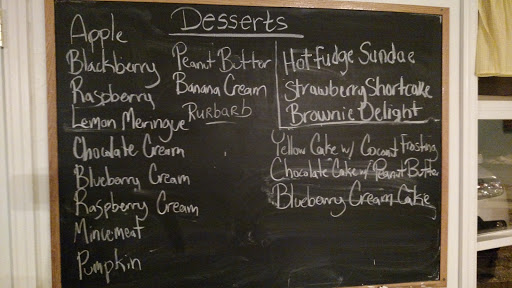 Desserts
Apple
Blackberry
Raspberry
Lemon Meringue
Chocolate Cream
Blueberry Cream
Raspberry Cream
Mincemeat
Pumpkin
Peanut Butter
Banana Cream
Rurbarb
Hot Fudge Sundae
Strawberry Shortcake
Brownie Delight
Yellow Cake w/ Coconut Frosting
Chocolate Cake w/ Peanut Butter
Blueberry Cream Cake